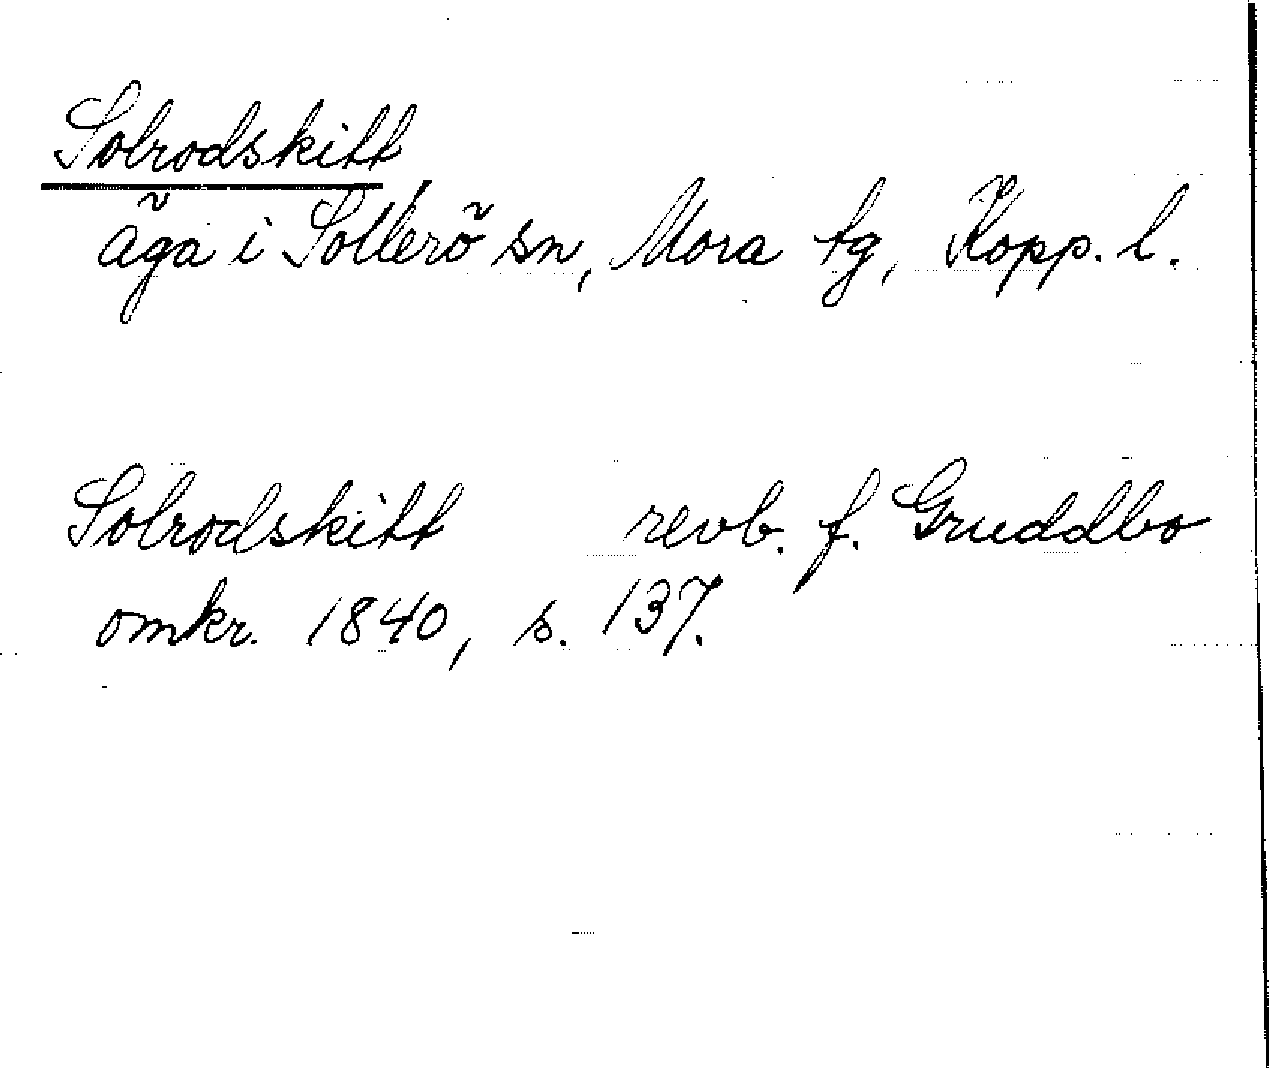 Solrodskitt
äga i Sollerö sn, Mora tg, Kopp. l.
Solrodskitt revb. f. Gruddbo
omkr. 1840, s. 137.